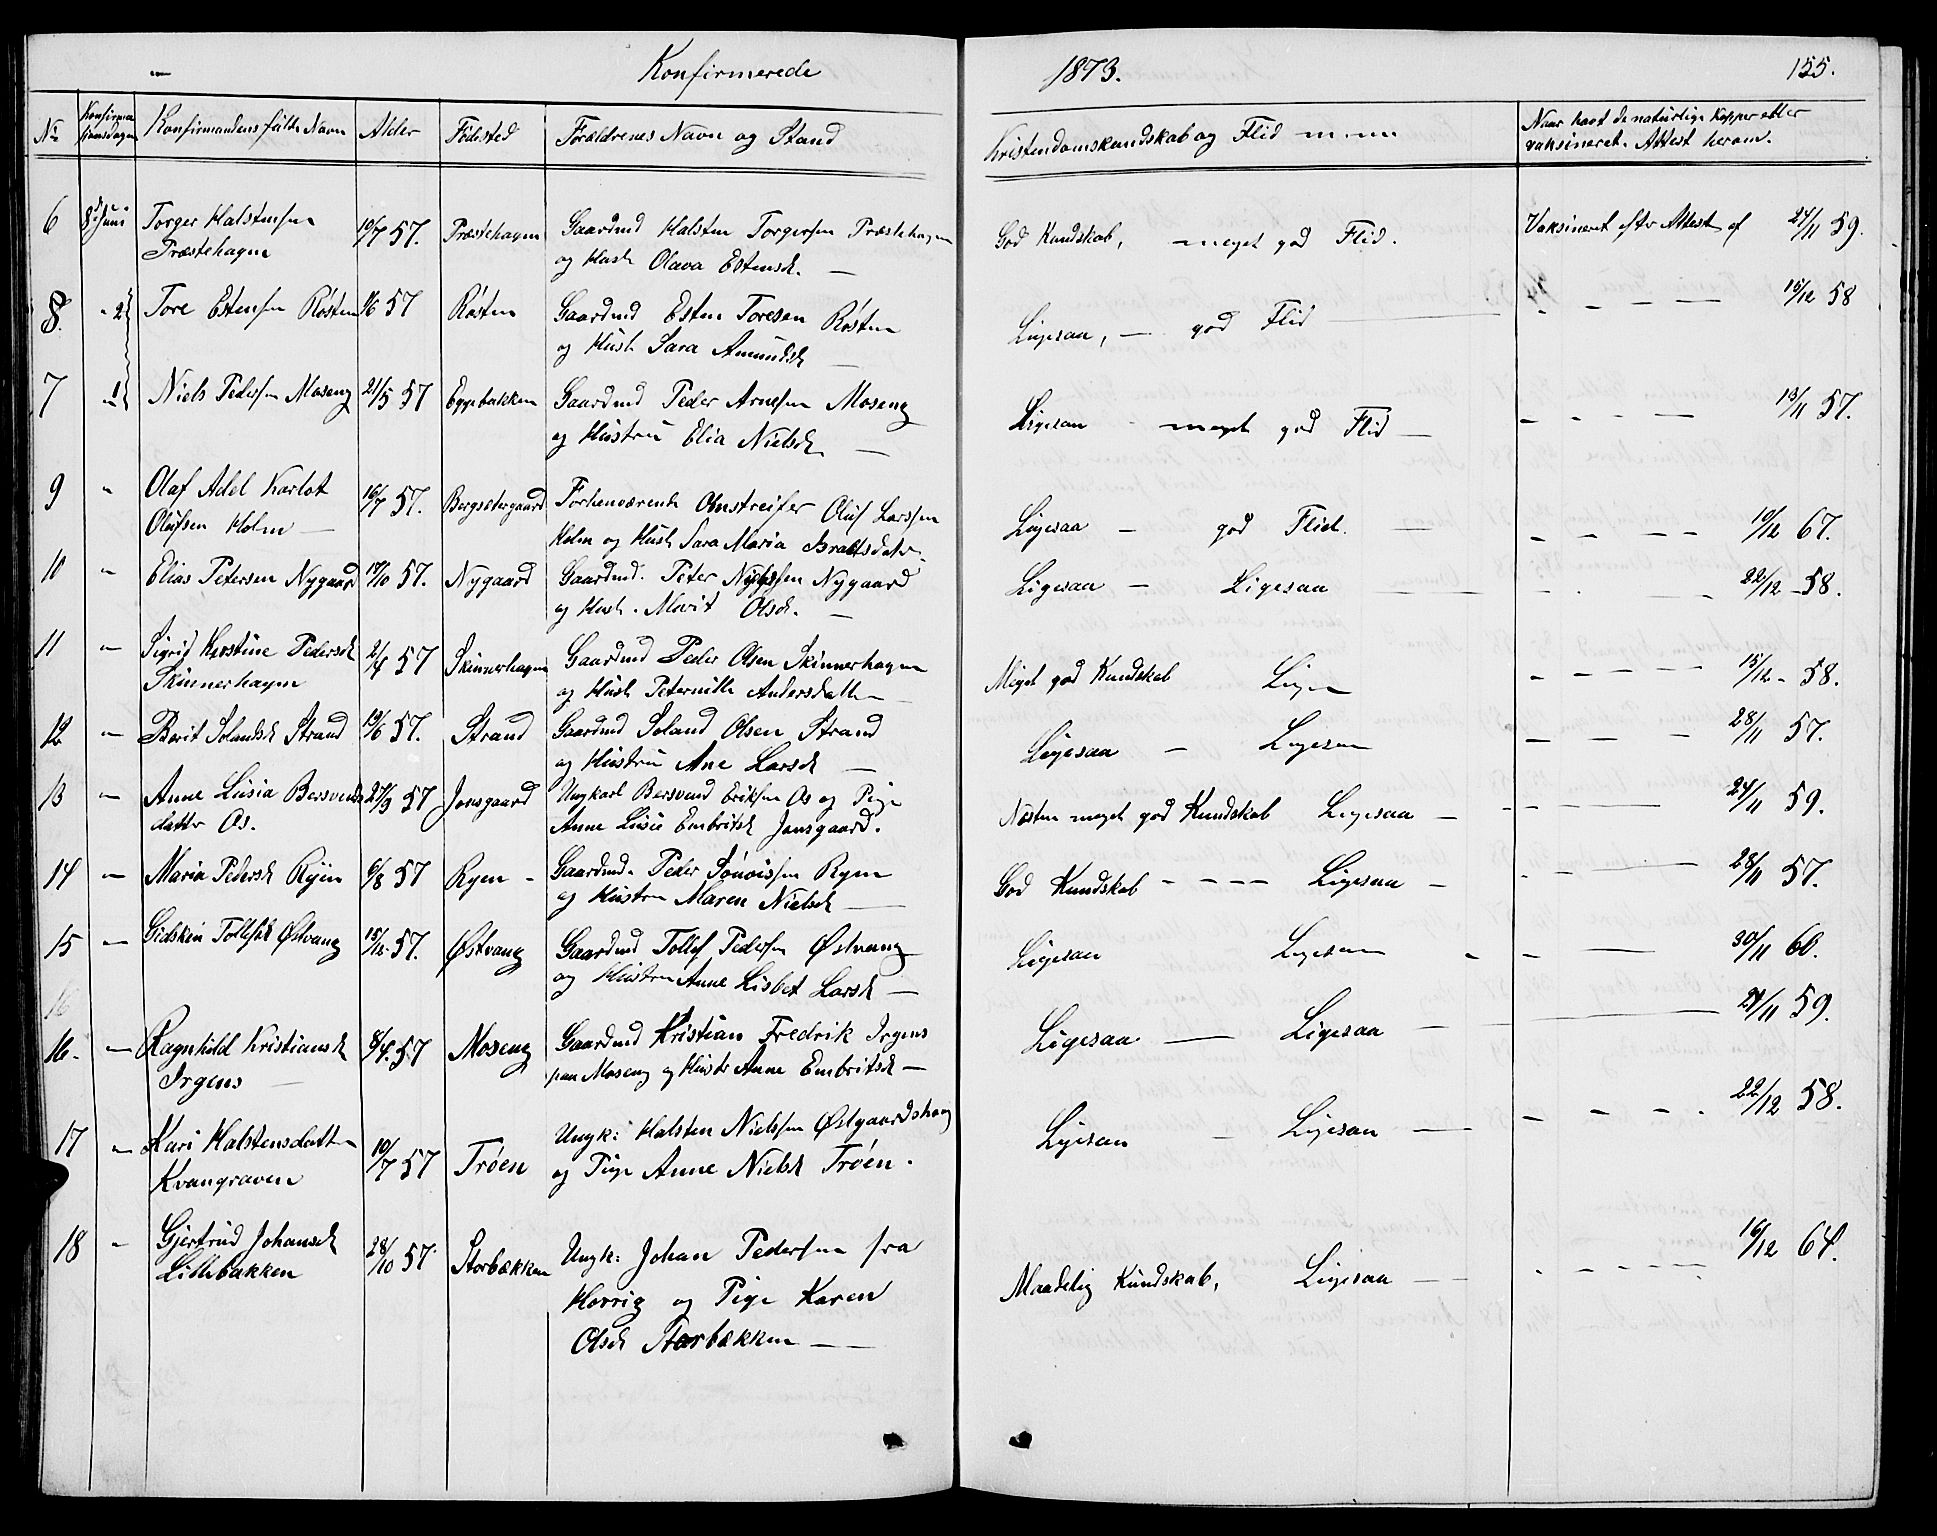 Konfirmerede 1873. 155.
No Konfirmationsdagen Konfirmandens fulde Navn Alder Födested Forældrenes Navn og Stand Kristendomskundskab og Flid m.m. Naar havt de naturlige Kopper eller vaksineret. Attest herom.
6 8de Juni Torger Halstensen 10/7 57. Præstehagen Gaardmd Halsten Torgersen Præstehagen God Kundskab, meget god Flid. Vaksineret efter Attest af 24/11 59.
Præstehagen og Hust Olava Estensd. —
8. " 2 Tore Estensen Røsten 1/6 57 Røsten Gaardmd Esten Toresen Røsten Ligesaa, — god Flid — " — — — 15/12 58
og Hust Sara Amundsd —
7 " 1 Niels Pedersen Moseng 21/5 57 Eggebakken Gaardmd Peder Arnesen Moseng Ligesaa - meget god Flid — — - — — 13/11 57.
og Hustru Elia Nielsd —
9 " Olaf Adel Karlot 16/7 57. Bergsetergaard Forhenværende Omstreifer Oluf Larssen Ligesaa — god Flid. — — — — — 10/12 67.
Olufsen Holm — Holm og Hust Sara Maria
10 " Elias Petersen Nygaard 17/10 57. Nygaard Gaardmd. Peter Nygaard Ligesaa — Ligesaa — — 22/12 - 58.
og Hust. Marit Olsd. —
11 " Sigrid Kerstine Pedersd 2/4 57 Skinnerhagen Gaardmd Peder Olsen Skinnerhagen Meget god Kundskab Ligesaa — — — — 15/12 - 58.
Skinnerhagen og Hust Peternille Andersdatter
12 " Berit Solandsd Strand 13/6 57. Strand Gaardmd Soland Olsen Strand Ligesaa — Ligesaa — — — — 28/11 57.
og Hustru Ane Larsd —
13 " Anne Lusia Bersvends 27/3 57 Jonsgaard Ungkarl Bersvend Eriksen Os og Pige Næsten meget god Kundskab Ligesaa — - - — 24/11 59.
datter Os. Anne Lusie Embritsd Jonsgaard.
14 " Maria Pedersd Ryen 6/8 57 Ryen - Gaardmd. Peder Ryen God Kundskab - - - - Ligesaa — - - — 28/11 57.
og Hustru Maren Nielsd —
15 " Gidsken Tollefsd Østvang 15/12. 57. Østvang Gaardmd Tollef Pedersen Østvang Ligesaa Ligesaa - - — 30/11 60.
og Hustru Anne Lisbet Larsd —
16
16. " Ragnhild Kristiansd 8/4. 57 Moseng Gaardmd Kristian Fredrik Irgens Ligesaa — Ligesaa — — 24/11 59.
Irgens — paa Moseng og Hustr Anne Embritsd —
17 " Kari Halstensdatter 10/7 57 Trøen Ungk: Halsten Nielsen Østgaardshaug Ligesaa — Ligesaa — — — - . 22/12 58.
Kvangraven og Pige Anne Nielsd Trøen.
18 " Gjertrud Johansd 28/10 57. Storbækken Ungk: Johan Pedersen fra Maadelig Kundskab, Ligesaa — - - - - - 16/12 64.
Lillebækken Horrig og Pige Karen
Olsd Storbækken —